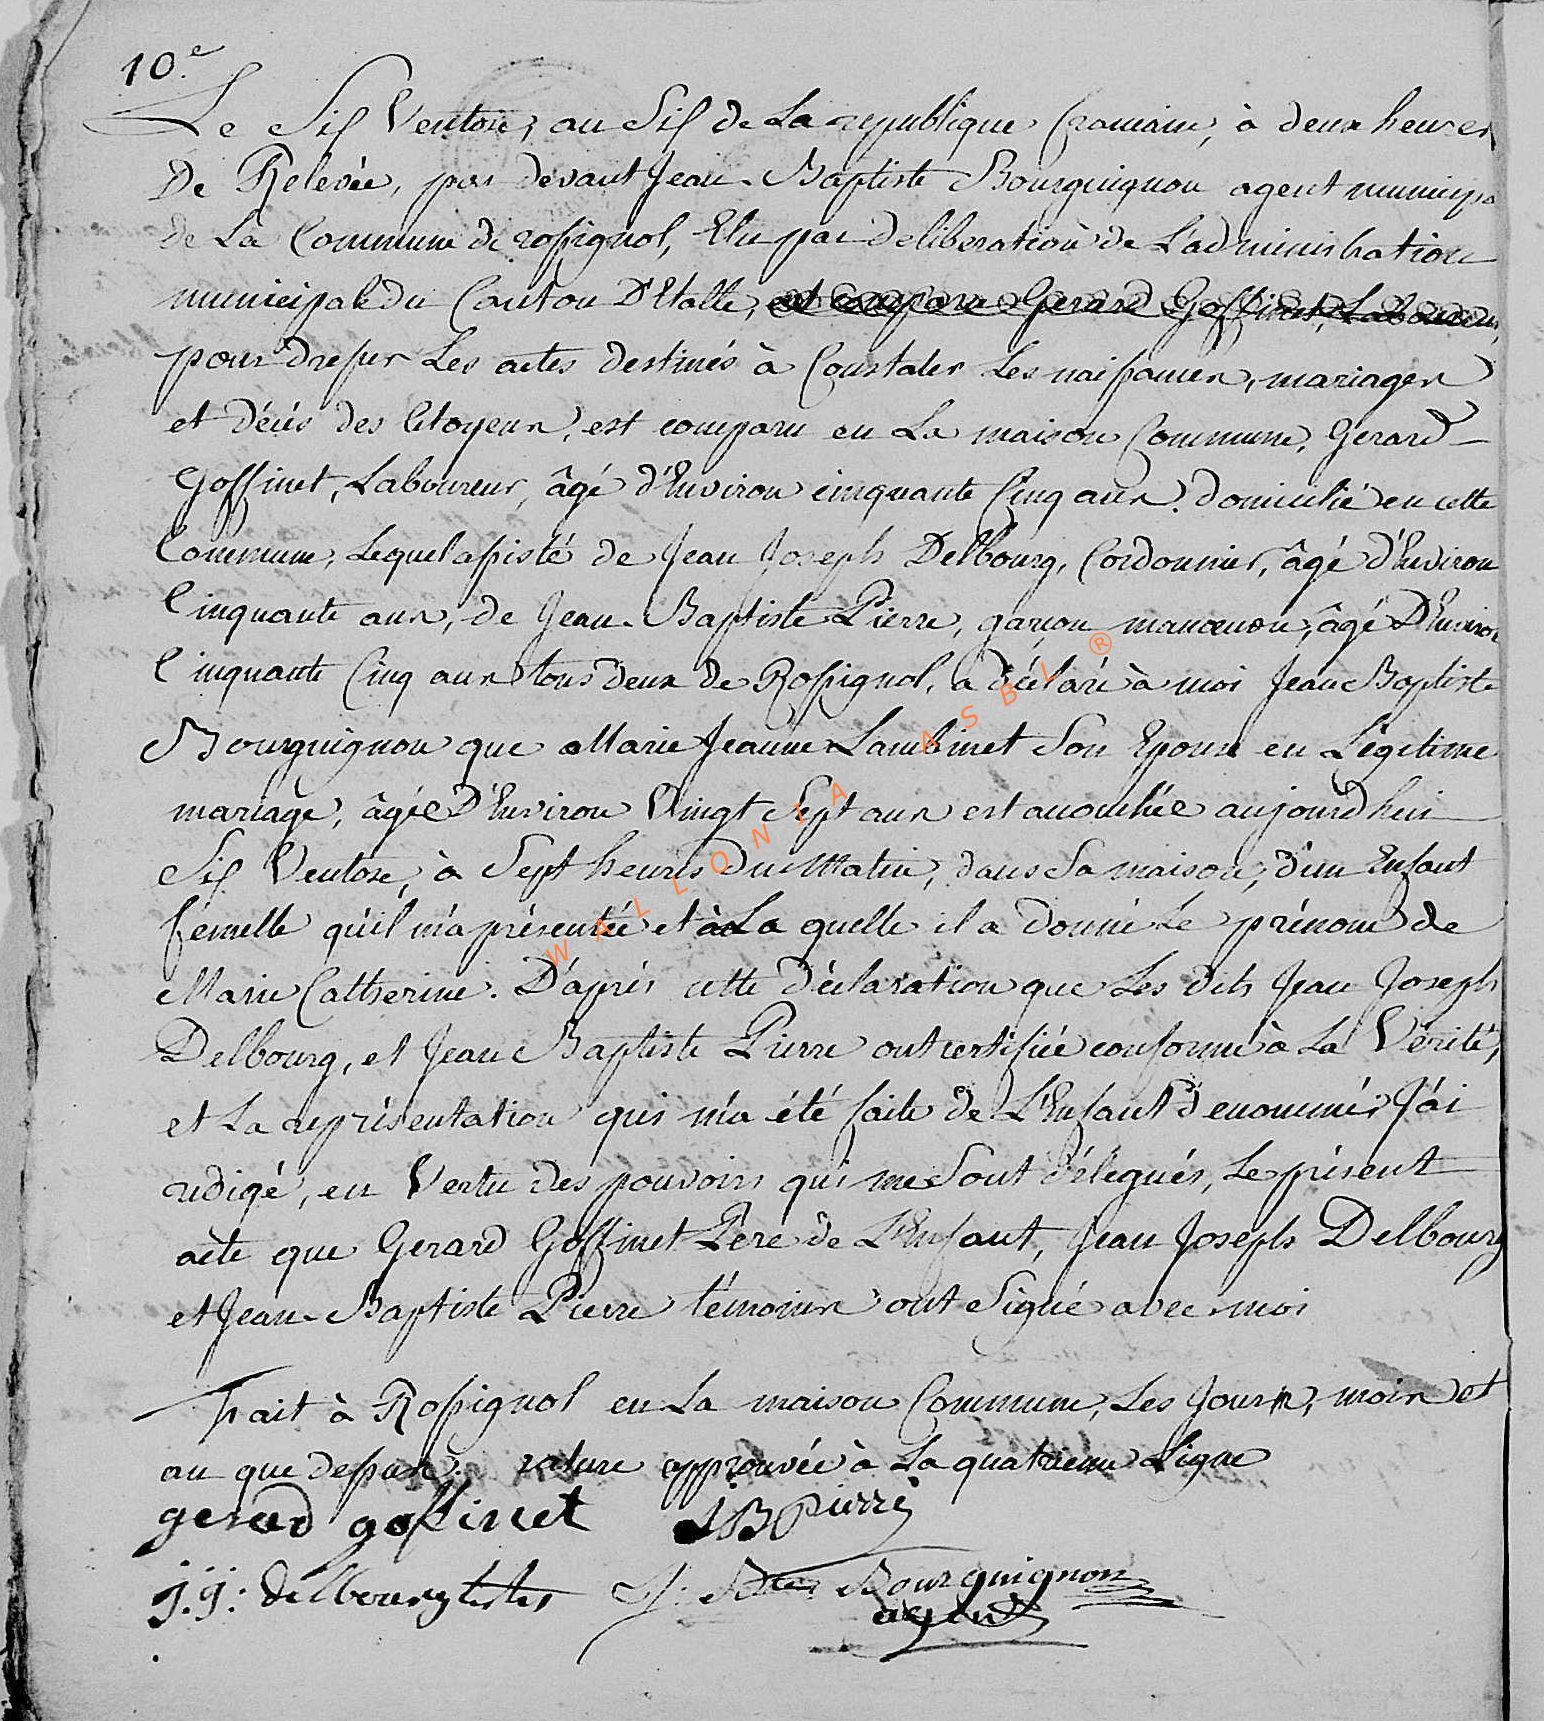 10.e
Le Six Ventose, an Six de La republique francaise, à deux heures
De Relevée, par devant Jean-Baptiste Bourguignon agent municipa
de La Commune de rossignol, Elu par deliberation de L'administration
municipale du Canton D'Etalle, est comparu Gerard Goffinet, Laboureur,
pour dresser Les actes destinés à Constater Les naissances, mariages
et décés des Citoyens, est comparu en La maison Commune, Gerard
Goffinet, Laboureur, âgé d'Environ cinquante Cinq ans, domicilié en cette
Commune, Lequel assisté de Jean Joseph Delbourg, Cordonnier, âgé d'Environ
Cinquante ans, de Jean-Baptiste Pierre, garçon manœuvre, âgé D'Environ
Cinquante Cinq ans tous deux de Rossignol, a déclaré à moi Jean Baptiste
Bourguignon que Marie Jeanne Lambinet Son Epouse en Légitime
mariage, âgée D'Environ Vingt Sept ans est accouchée aujourd'hui
Six Ventose, à Sept heures Du Matin, dans Sa maison, d'un Enfant
femelle qu'il m'a présentée et à La quelle il a donné Le prénom de
Marie Catherine. D'après cette déclaration que Les dits Jean Joseph
Delbourg, et Jean Baptiste Pierre ont certifiée conforme à La Vérité,
et La représentation qui m'a été faite de L'Enfant dénommé, J'ai
redigé, en Vertu des pouvoirs qui me Sont délegués, Le présent
acte que Gerard Goffinet Pere de L'Enfant, Jean Joseph Delbourg
et Jean-Baptiste Pierre témoins ont Signé avec moi
Fait à Rossignol en La maison Commune, Les Jours, mois et
an que dessus. rature approuvée à La quatrieme Ligne
gerard goffinet JB Pierre
j.j: delbourg testes J. Btte Bourguignon
agent
WALLONIA ASBL ®